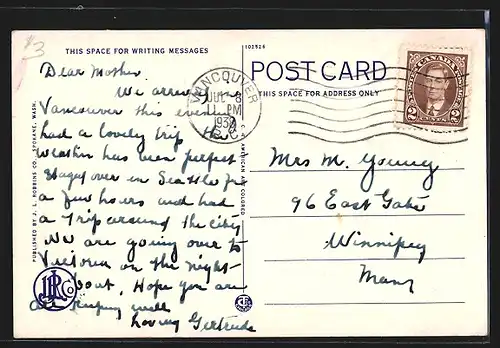 $3
THIS SPACE FOR WRITING MESSAGES
102526
POST CARD
THIS SPACE FOR ADDRESS ONLY
Dear Mother
We arrived
Vancouver this evening
had a lovely trip
Weather has been perfect
Stayed over in Seattle for
a few hours and had
a trip around the city
We are going over to
Victoria on the night
boat, Hope you are
all keeping well
Loving Gertrude
VANCOUVER
JUL 8
11 PM
B.C.
CANADA
2 2
Mrs M. Young
96 East Gate
Winnipeg
Man
PUBLISHED BY J. L. ROBBINS CO., SPOKANE, WASH.
AMERICAN
COLORED
JLR Co